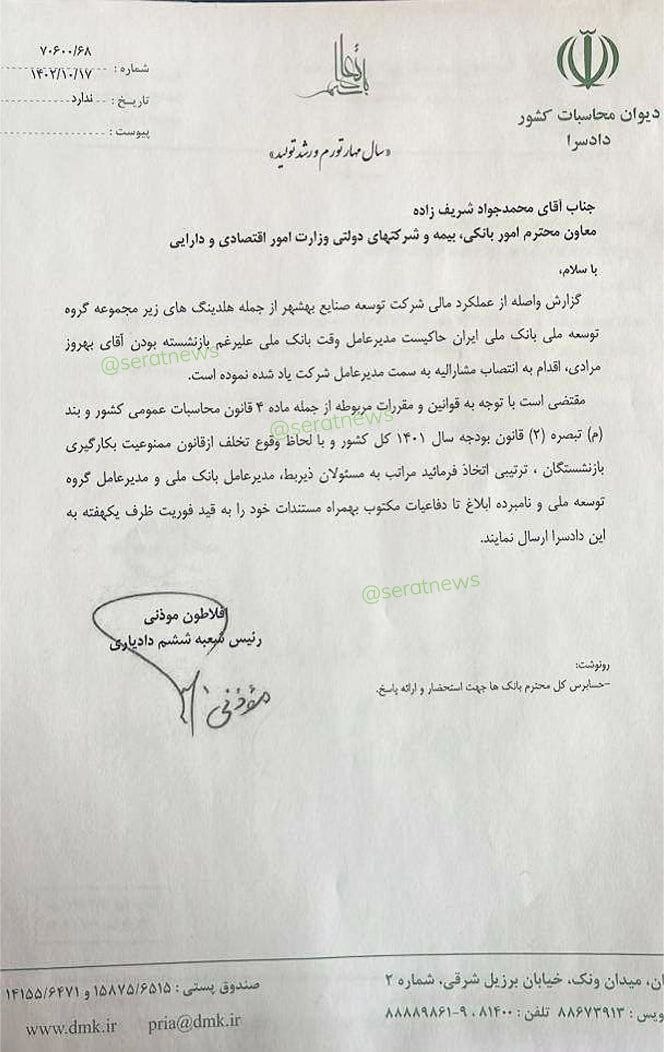 دیوان محاسبات کشور
دادسرا
باسمه تعالی
«سال مهار تورم و رشد تولید»
شماره : ۷۰۶۰۰/۶۸
تاریخ : ۱۴۰۲/۱۰/۱۷
پیوست : ندارد
جناب آقای محمدجواد شریف زاده
معاون محترم امور بانکی، بیمه و شرکتهای دولتی وزارت امور اقتصادی و دارایی
با سلام،
گزارش واصله از عملکرد مالی شرکت توسعه صنایع بهشهر از جمله هلدینگ های زیر مجموعه گروه
توسعه ملی بانک ملی ایران حاکیست مدیرعامل وقت بانک ملی علیرغم بازنشسته بودن آقای بهروز
@seratnews
مرادی، اقدام به انتصاب مشارالیه به سمت مدیرعامل شرکت یاد شده نموده است.
مقتضی است با توجه به قوانین و مقررات مربوطه از جمله ماده ۴ قانون محاسبات عمومی کشور و بند
@seratnews
(م) تبصره (۲) قانون بودجه سال ۱۴۰۱ کل کشور و با لحاظ وقوع تخلف ازقانون ممنوعیت بکارگیری
بازنشستگان ، ترتیبی اتخاذ فرمائید مراتب به مسئولان ذیربط، مدیرعامل بانک ملی و مدیرعامل گروه
توسعه ملی و نامبرده ابلاغ تا دفاعیات مکتوب بهمراه مستندات خود را به قید فوریت ظرف یکهفته به
این دادسرا ارسال نمایند.
@seratnews
افلاطون موذنی
رئیس شعبه ششم دادیاری
مؤذنی
رونوشت:
-حسابرس کل محترم بانک ها جهت استحضار و ارائه پاسخ.
میدان ونک، خیابان برزیل شرقی، شماره ۲
تلفن : ۸۱۴۰۰ ،۹-۸۸۸۸۹۸۶۱ ۸۸۶۷۳۹۱۳ :
صندوق پستی : ۱۵۸۷۵/۶۵۱۵ و ۱۴۱۵۵/۶۴۷۱
www.dmk.ir pria@dmk.ir